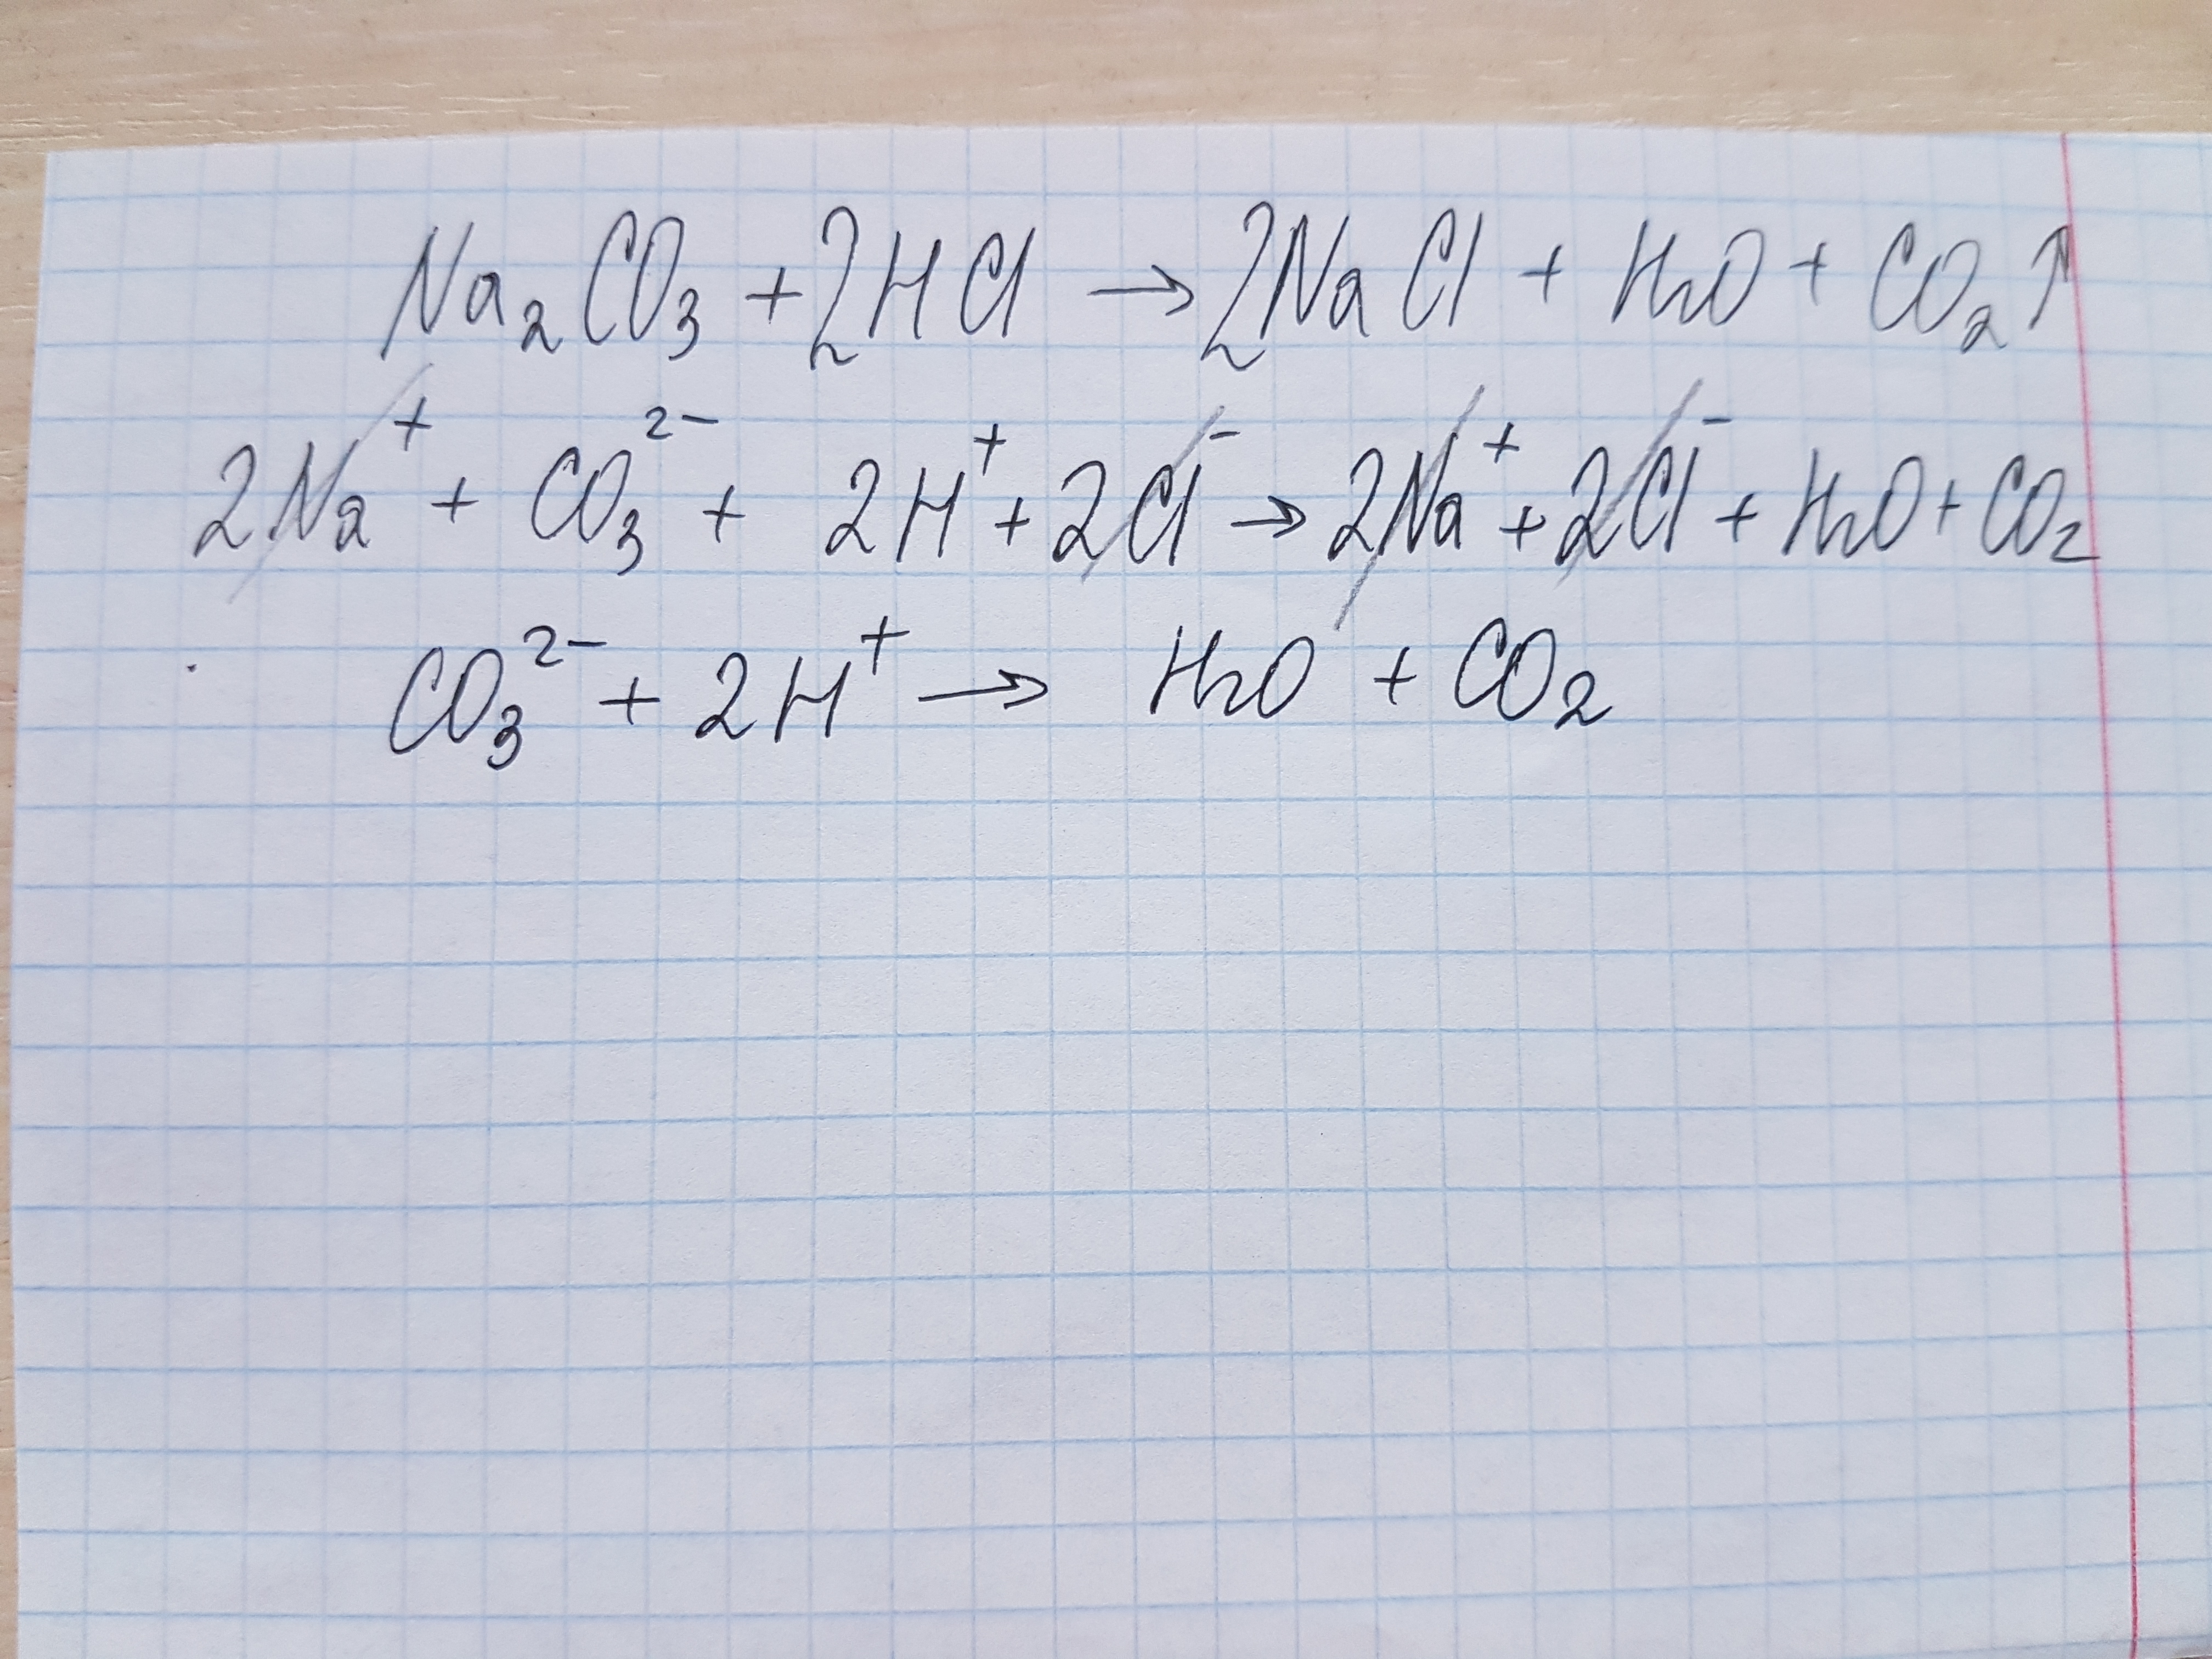 Na₂CO₃ + 2HCl → 2NaCl + H₂O + CO₂↑
2Na⁺ + CO₃²⁻ + 2H⁺ + 2Cl⁻ → 2Na⁺ + 2Cl⁻ + H₂O + CO₂
CO₃²⁻ + 2H⁺ → H₂O + CO₂